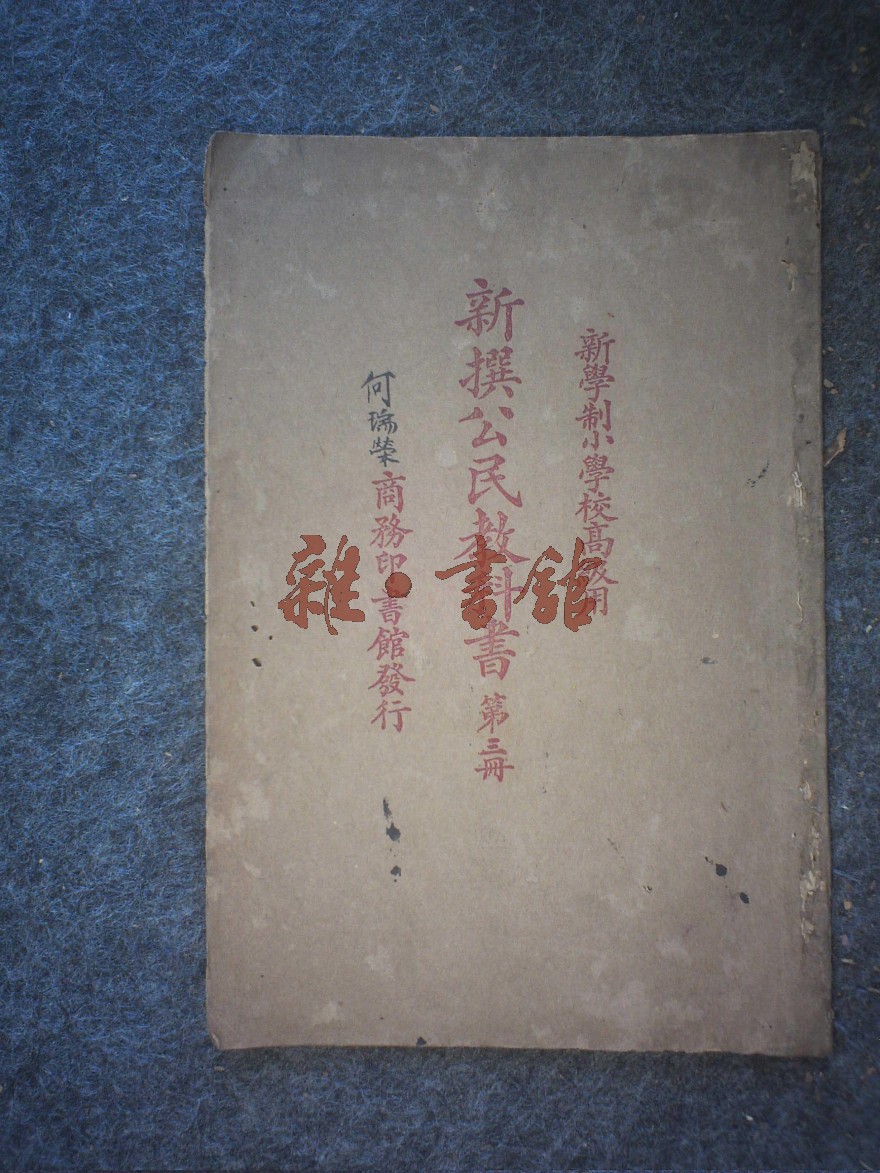 新學制小學校高級用
新撰公民教科書 第三冊
何瑞榮
商務印書館發行
雜·書館